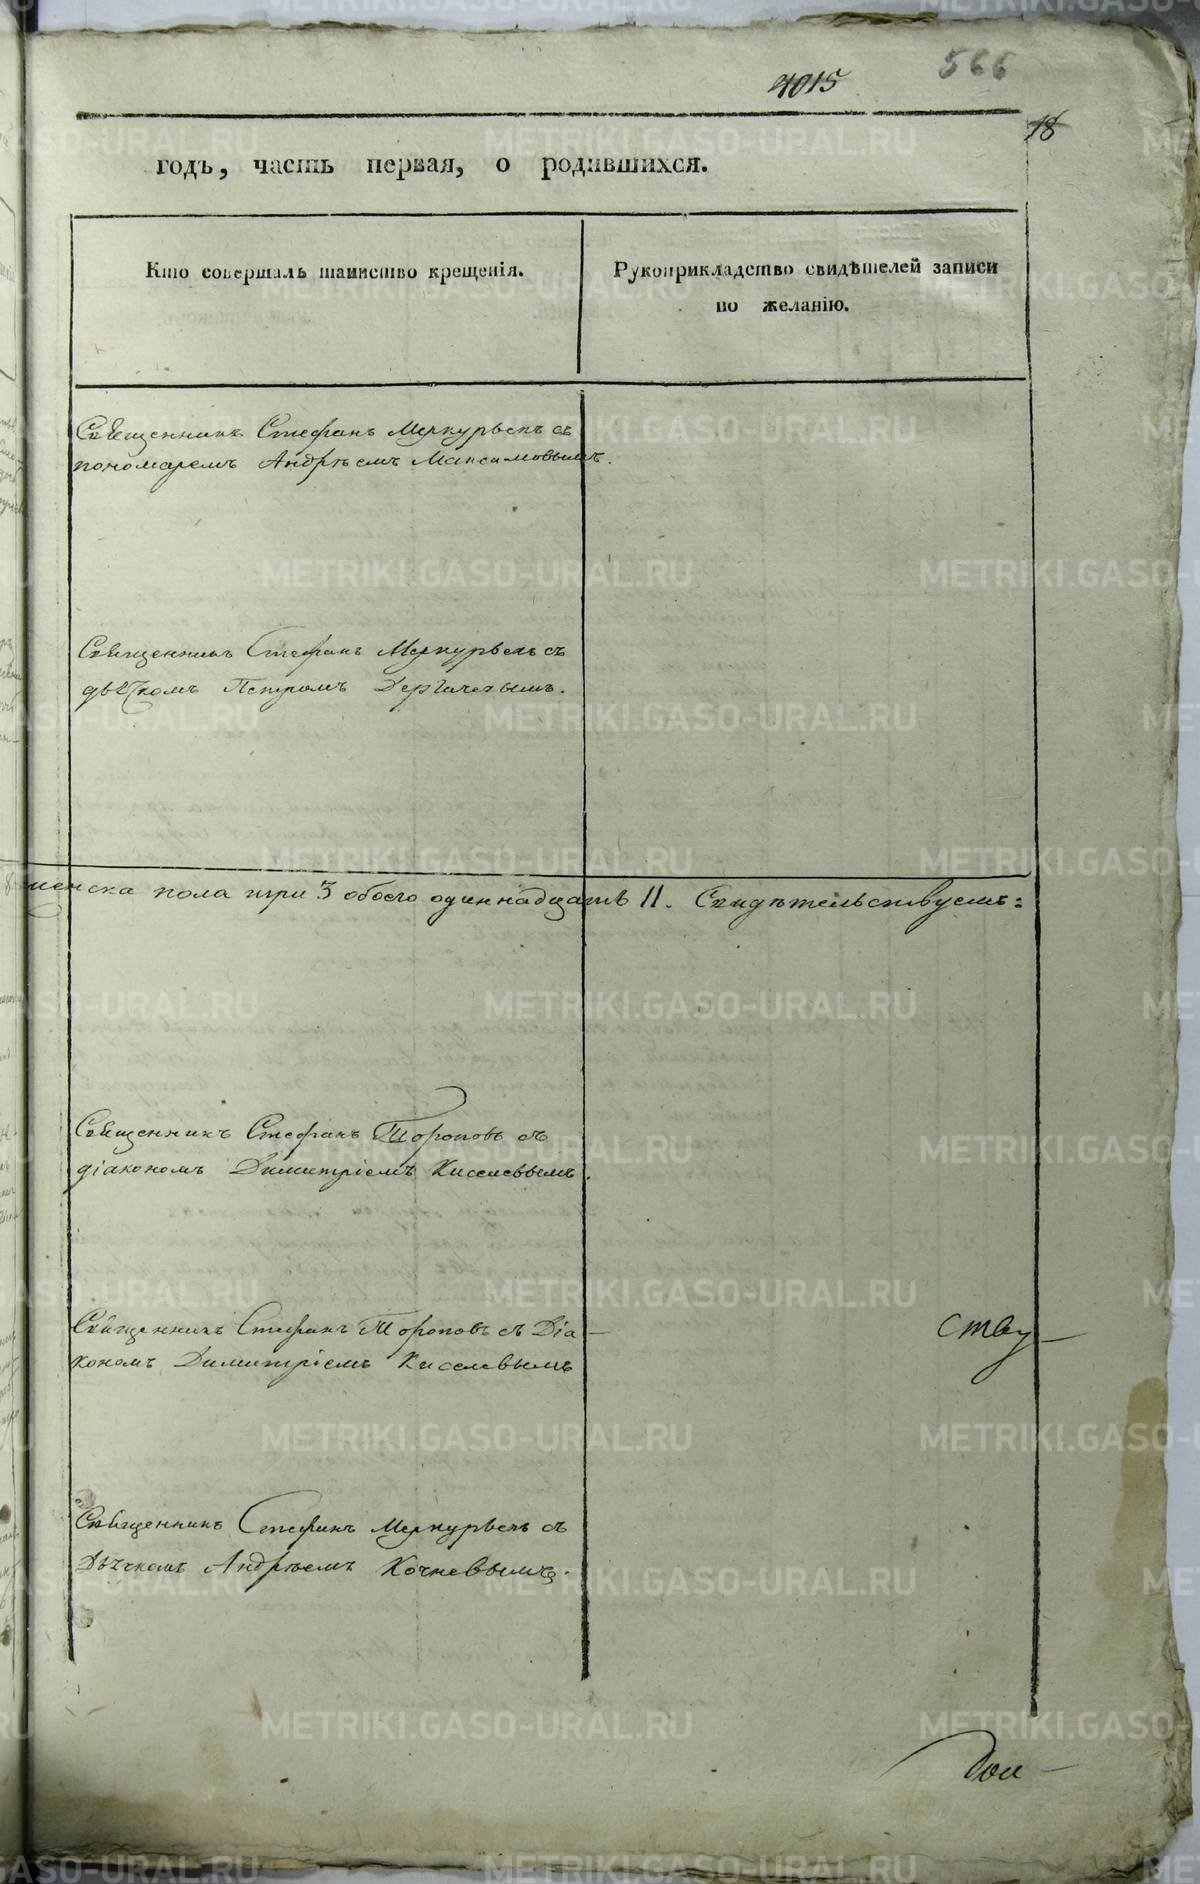 566
4015
18
годъ, часть первая, о родившихся.
Кто совершалъ таинство крещенія.
Рукоприкладство свидѣтелей записи
по желанію.
Священникъ Стефанъ Меркурьевъ съ
пономаремъ Андрѣемъ Максимовымъ.
Священникъ Стефанъ Меркурьевъ съ
дьячкомъ Петромъ Дергачевымъ.
женска пола три 3 обоего одиннадцать 11. Свидѣтельствуемъ:
Священникъ Стефанъ Тороповъ съ
діакономъ Димитріемъ Киселевымъ.
Священникъ Стефанъ Тороповъ съ Діа-
кономъ Димитріемъ Киселевымъ
ству-
Священникъ Стефанъ Меркурьевъ съ
Дьячкомъ Андрѣемъ Кочневымъ.
METRIKI.GASO-URAL.RU